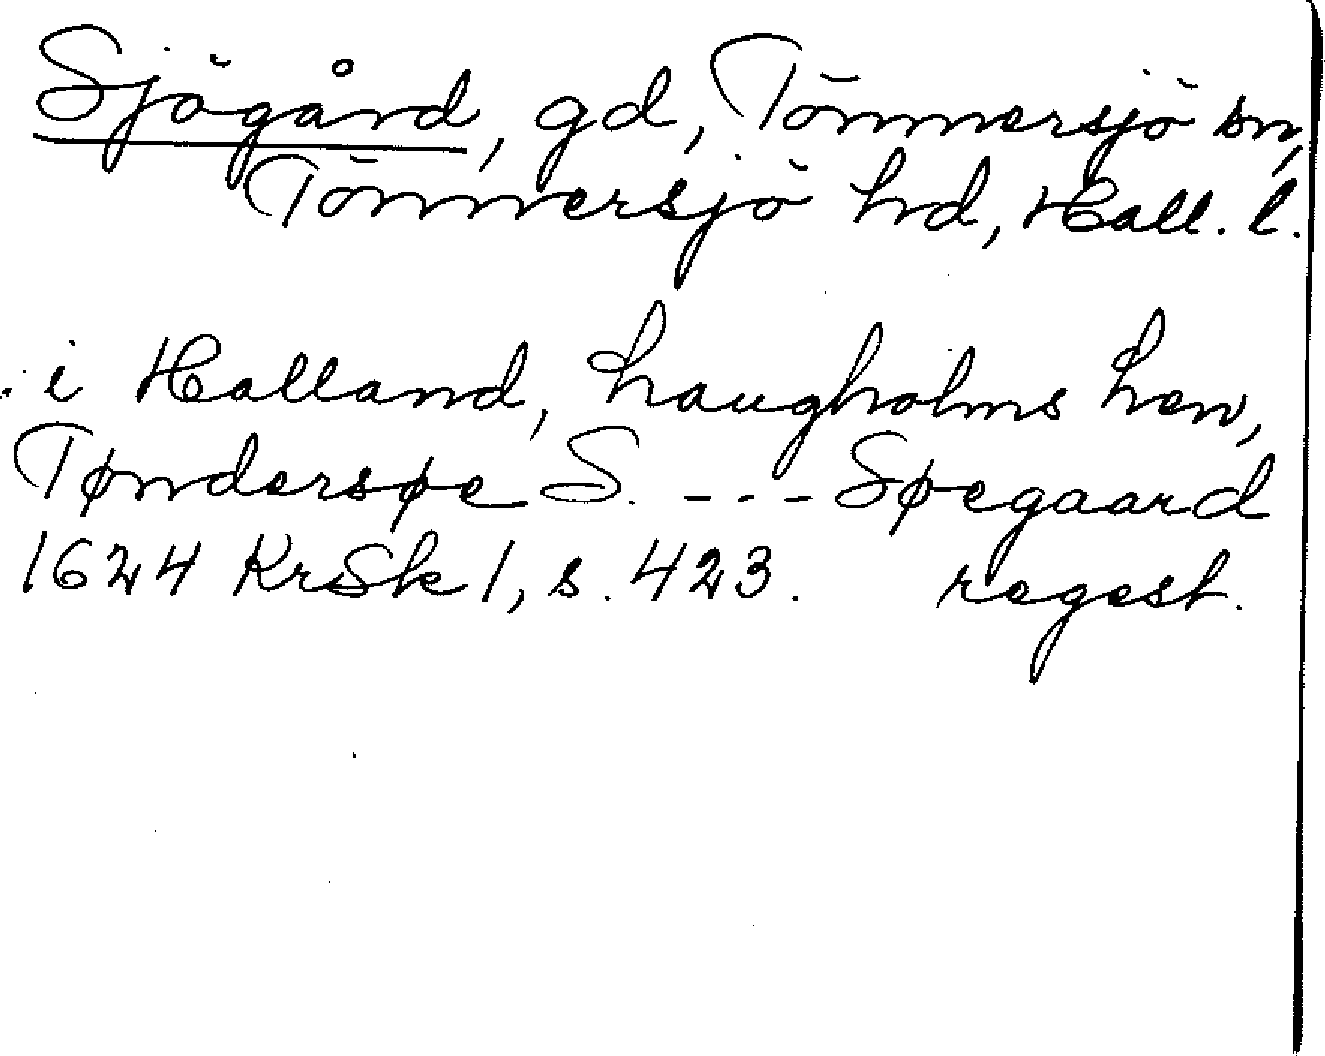 Sjögård, gd, Tönnersjö sn,
Tönnersjö hd, Hall. l.
. i Halland, haugholms hen,
Tøndersøe S. - - - Søegaard
1624 KrSk 1, s. 423. regest.